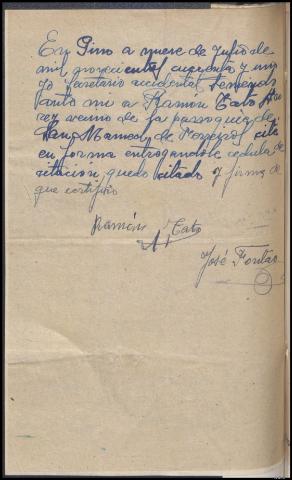 En Pino a nueve de Julio de
mil novecientos cincuenta y uno
yo Secretario accidental, teniendo
ante mi a Ramón Tato
vecino de la parroquia de
San Mamed de cito
en forma entregandole cedula de
citación, quedo citado y firma de
que certifico
Ramón Tato
José Fontao